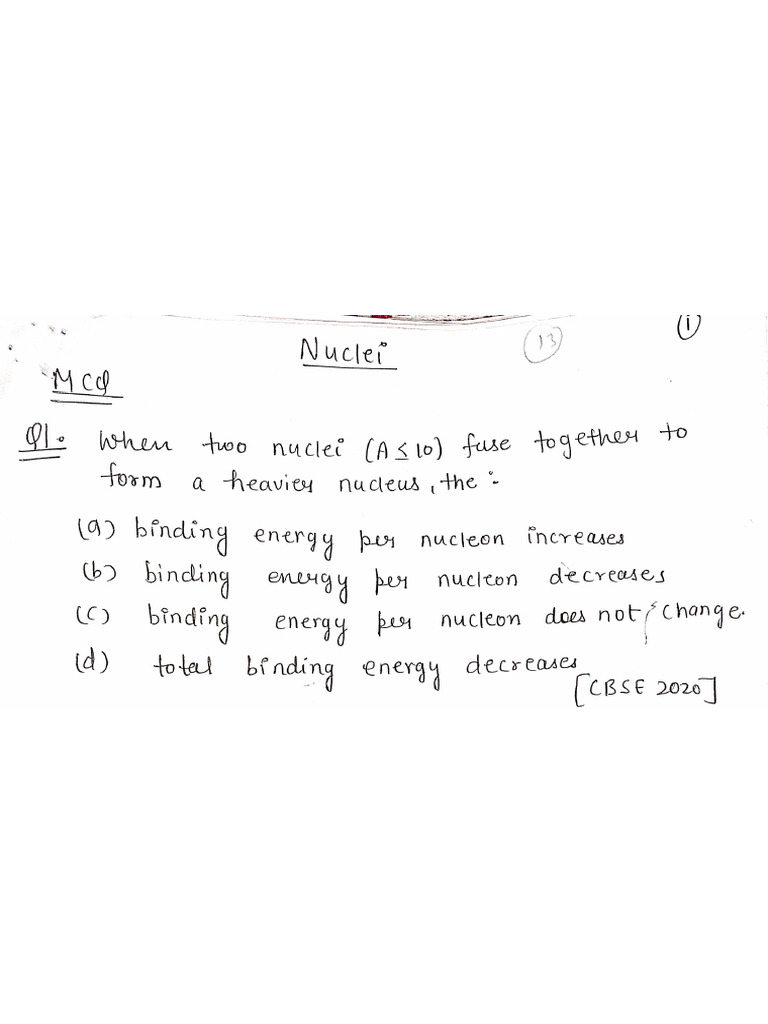 Nuclei
13
(1)
MCQ
Q1. When two nuclei (A ≤ 10) fuse together to
form a heavier nucleus, the :-
(a) binding energy per nucleon increases
(b) binding energy per nucleon decreases
(c) binding energy per nucleon does not change.
(d) total binding energy decreases
[CBSE 2020]